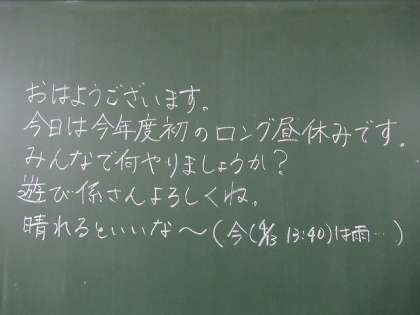 おはようございます。
今日は今年度初のロング昼休みです。
みんなで何やりましょうか?
遊び係さんよろしくね。
晴れるといいな〜(今(4/3 13:40)は雨…)